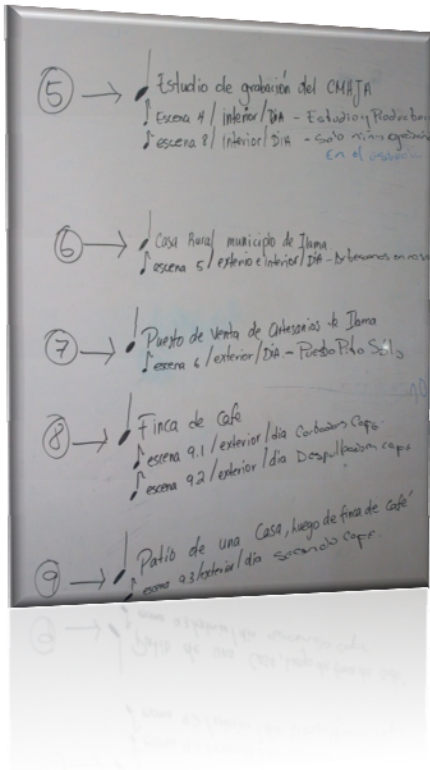 5 → Estudio de grabación del CMAJA
Escena 4 / interior / DIA - Estudio y Production
escena 8 / interior / DIA - Solo niño
En el
6 → Casa Rural municipio de Ilama
escena 5 / exterio e interior / DIA -
7 → Puesto de Venta de Artesanias de Ilama
escena 6 / exterior / DIA - Puesto Pito Solo
8 → Finca de Cafe
escena 9.1 / exterior / dia Cortadores Cafe
escena 9.2 / exterior / dia Despulpadora cafe
9 → Patio de una Casa, luego de finca de Café
escena 9.3 / exterior / dia Secando Cafe.